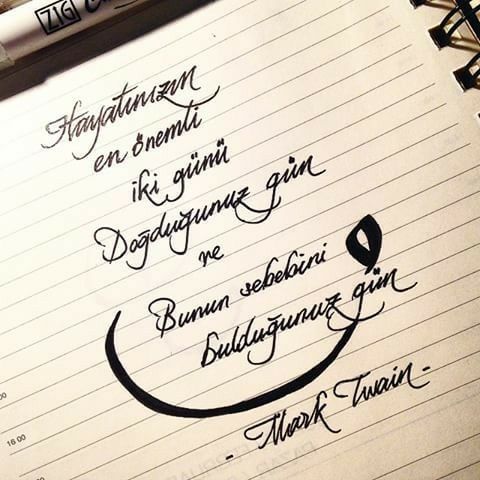 ZIG
Hayatınızın
en önemli
iki günü
Doğduğunuz gün
ve
Bunun sebebini
bulduğunuz gün
- Mark Twain -
16 00